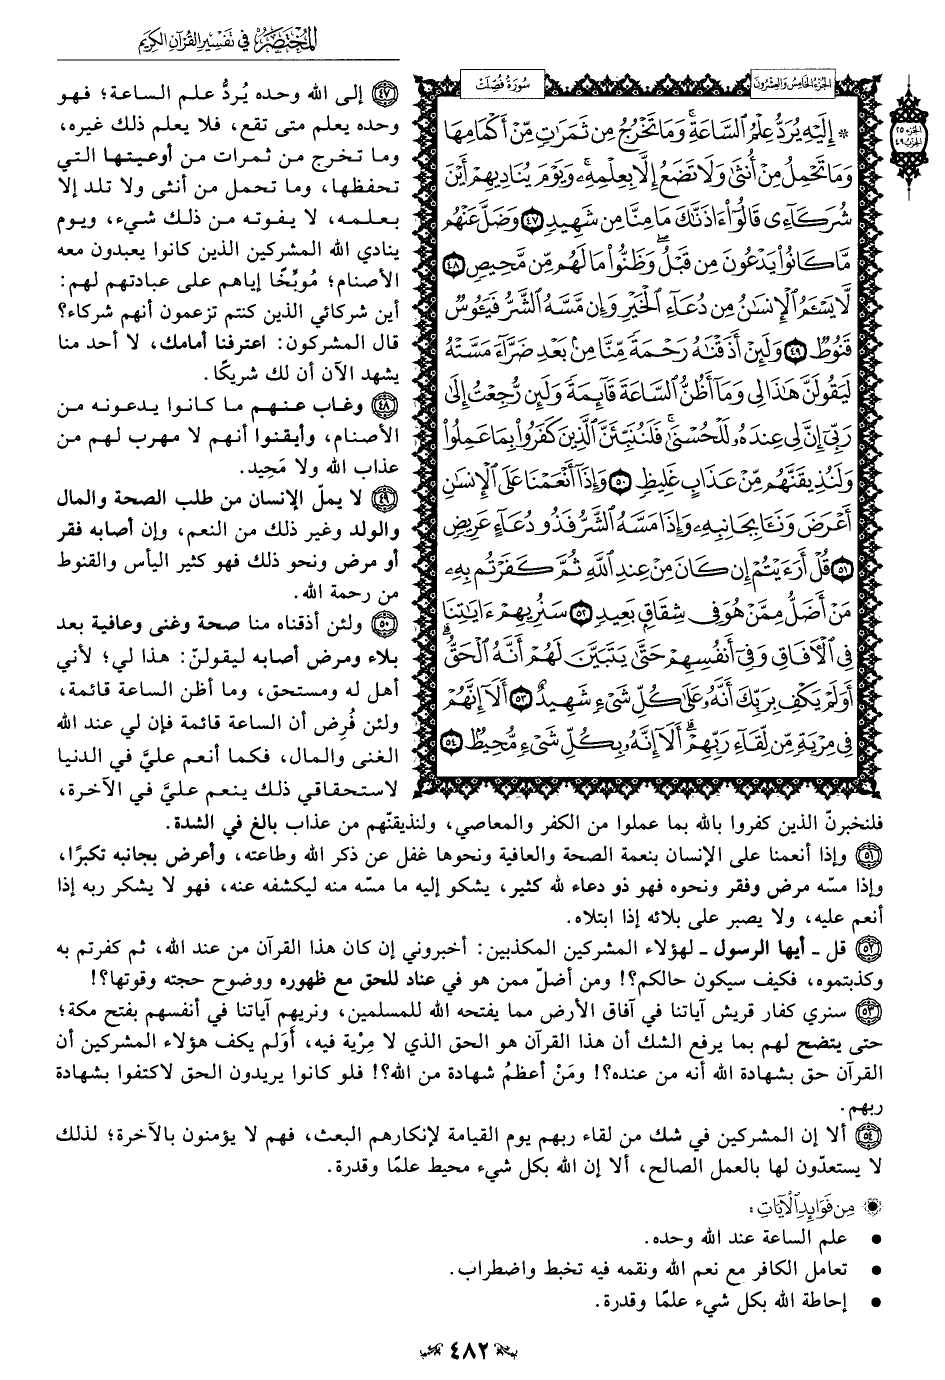 المختصر في تفسير القرآن الكريم
الجزء الخامس والعشرون
سورة فصلت
الجزء ٢٥
الحزب ٤٩
* إِلَيْهِ يُرَدُّ عِلْمُ السَّاعَةِ وَمَا تَخْرُجُ مِن ثَمَرَٰتٍ مِّنْ أَكْمَامِهَا
وَمَا تَحْمِلُ مِنْ أُنثَىٰ وَلَا تَضَعُ إِلَّا بِعِلْمِهِۦ وَيَوْمَ يُنَادِيهِمْ أَيْنَ
شُرَكَآءِى قَالُوٓا۟ ءَاذَنَّٰكَ مَا مِنَّا مِن شَهِيدٍ ٤٧ وَضَلَّ عَنْهُم
مَّا كَانُوا۟ يَدْعُونَ مِن قَبْلُ وَظَنُّوا۟ مَا لَهُم مِّن مَّحِيصٍ ٤٨
لَّا يَسْـَٔمُ الْإِنسَٰنُ مِن دُعَآءِ الْخَيْرِ وَإِن مَّسَّهُ الشَّرُّ فَيَـُٔوسٌ
قَنُوطٌ ٤٩ وَلَئِنْ أَذَقْنَٰهُ رَحْمَةً مِّنَّا مِنۢ بَعْدِ ضَرَّآءَ مَسَّتْهُ
لَيَقُولَنَّ هَٰذَا لِى وَمَآ أَظُنُّ السَّاعَةَ قَآئِمَةً وَلَئِن رُّجِعْتُ إِلَىٰ
رَبِّىٓ إِنَّ لِى عِندَهُۥ لَلْحُسْنَىٰ فَلَنُنَبِّئَنَّ الَّذِينَ كَفَرُوا۟ بِمَا عَمِلُوا۟
وَلَنُذِيقَنَّهُم مِّنْ عَذَابٍ غَلِيظٍ ٥٠ وَإِذَآ أَنْعَمْنَا عَلَى الْإِنسَٰنِ
أَعْرَضَ وَنَـَٔا بِجَانِبِهِۦ وَإِذَا مَسَّهُ الشَّرُّ فَذُو دُعَآءٍ عَرِيضٍ
٥١ قُلْ أَرَءَيْتُمْ إِن كَانَ مِنْ عِندِ اللَّهِ ثُمَّ كَفَرْتُم بِهِۦ
مَنْ أَضَلُّ مِمَّنْ هُوَ فِى شِقَاقٍۭ بَعِيدٍ ٥٢ سَنُرِيهِمْ ءَايَٰتِنَا
فِى الْآفَاقِ وَفِىٓ أَنفُسِهِمْ حَتَّىٰ يَتَبَيَّنَ لَهُمْ أَنَّهُ الْحَقُّ
أَوَلَمْ يَكْفِ بِرَبِّكَ أَنَّهُۥ عَلَىٰ كُلِّ شَىْءٍ شَهِيدٌ ٥٣ أَلَآ إِنَّهُمْ
فِى مِرْيَةٍ مِّن لِّقَآءِ رَبِّهِمْ أَلَآ إِنَّهُۥ بِكُلِّ شَىْءٍ مُّحِيطٌۢ ٥٤
٤٧ إلى الله وحده يُردُّ علم الساعة؛ فهو
وحده يعلم متى تقع، فلا يعلم ذلك غيره،
وما تخرج من ثمرات من أوعيتها التي
تحفظها، وما تحمل من أنثى ولا تلد إلا
بعلمه، لا يفوته من ذلك شيء، ويوم
ينادي الله المشركين الذين كانوا يعبدون معه
الأصنام؛ مُوبِّخًا إياهم على عبادتهم لهم:
أين شركائي الذين كنتم تزعمون أنهم شركاء؟
قال المشركون: اعترفنا أمامك، لا أحد منا
يشهد الآن أن لك شريكًا.
٤٨ وغاب عنهم ما كانوا يدعونه من
الأصنام، وأيقنوا أنهم لا مهرب لهم من
عذاب الله ولا مَحِيد.
٤٩ لا يملّ الإنسان من طلب الصحة والمال
والولد وغير ذلك من النعم، وإن أصابه فقر
أو مرض ونحو ذلك فهو كثير اليأس والقنوط
من رحمة الله.
٥٠ ولئن أذقناه منا صحة وغنى وعافية بعد
بلاء ومرض أصابه ليقولنّ: هذا لي؛ لأني
أهل له ومستحق، وما أظن الساعة قائمة،
ولئن فُرِض أن الساعة قائمة فإن لي عند الله
الغنى والمال، فكما أنعم عليَّ في الدنيا
لاستحقاقي ذلك ينعم عليَّ في الآخرة،
فلنخبرنّ الذين كفروا بالله بما عملوا من الكفر والمعاصي، ولنذيقنّهم من عذاب بالغ في الشدة.
٥١ وإذا أنعمنا على الإنسان بنعمة الصحة والعافية ونحوها غفل عن ذكر الله وطاعته، وأعرض بجانبه تكبرًا،
وإذا مسّه مرض وفقر ونحوه فهو ذو دعاء لله كثير، يشكو إليه ما مسّه منه ليكشفه عنه، فهو لا يشكر ربه إذا
أنعم عليه، ولا يصبر على بلائه إذا ابتلاه.
٥٢ قل ـ أيها الرسول ـ لهؤلاء المشركين المكذبين: أخبروني إن كان هذا القرآن من عند الله، ثم كفرتم به
وكذبتموه، فكيف سيكون حالكم؟! ومن أضلّ ممن هو في عناد للحق مع ظهوره ووضوح حجته وقوتها؟!
٥٣ سنري كفار قريش آياتنا في آفاق الأرض مما يفتحه الله للمسلمين، ونريهم آياتنا في أنفسهم بفتح مكة؛
حتى يتضح لهم بما يرفع الشك أن هذا القرآن هو الحق الذي لا مِرْية فيه، أَوَلم يكف هؤلاء المشركين أن
القرآن حق بشهادة الله أنه من عنده؟! ومَنْ أعظمُ شهادة من الله؟! فلو كانوا يريدون الحق لاكتفوا بشهادة
ربهم.
٥٤ ألا إن المشركين في شك من لقاء ربهم يوم القيامة لإنكارهم البعث، فهم لا يؤمنون بالآخرة؛ لذلك
لا يستعدّون لها بالعمل الصالح، ألا إن الله بكل شيء محيط علمًا وقدرة.
مِن فَوَائِدِ الآيَاتِ:
• علم الساعة عند الله وحده.
• تعامل الكافر مع نعم الله ونقمه فيه تخبط واضطراب.
• إحاطة الله بكل شيء علمًا وقدرة.
٤٨٢